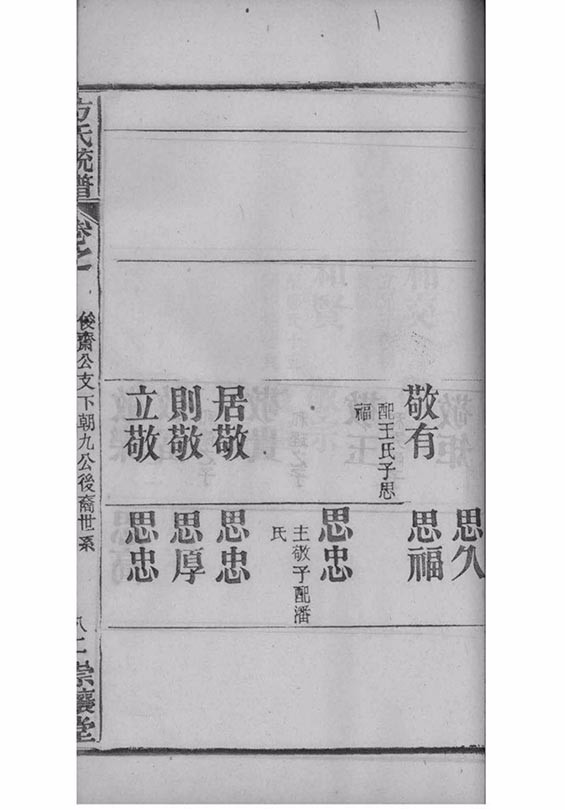 敬有
配王氏子思
福
居敬
則敬
立敬
思久
思福
思忠
主敬子配潘
氏
思忠
思厚
思忠
方氏統譜
卷之
俊齋公支下朝九公後裔世系
崇讓堂